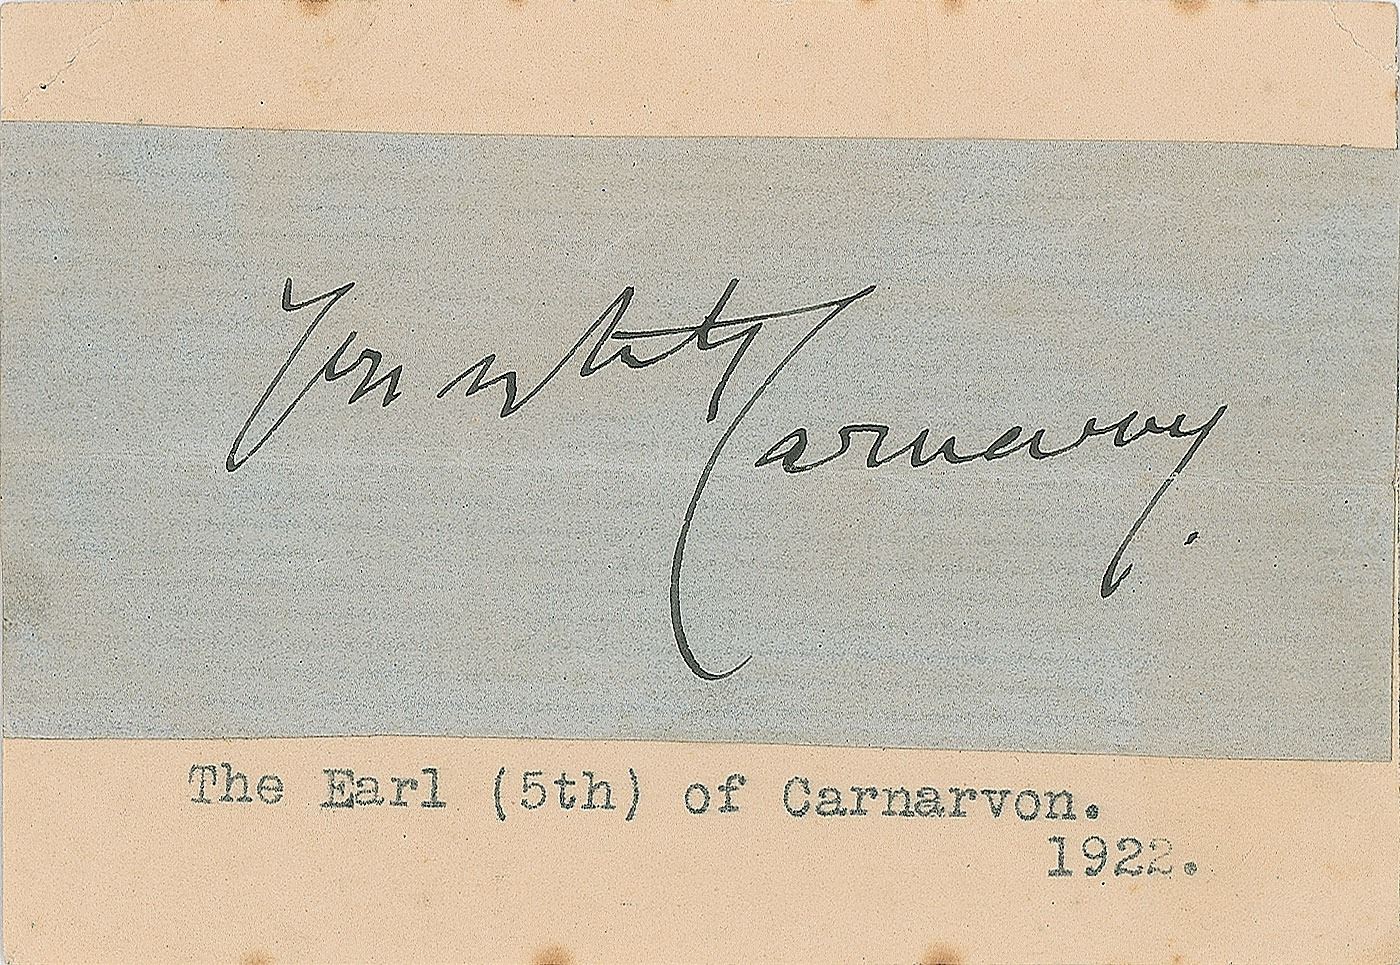 Yours truly
Carnarvon.
The Earl (5th) of Carnarvon.
1922.